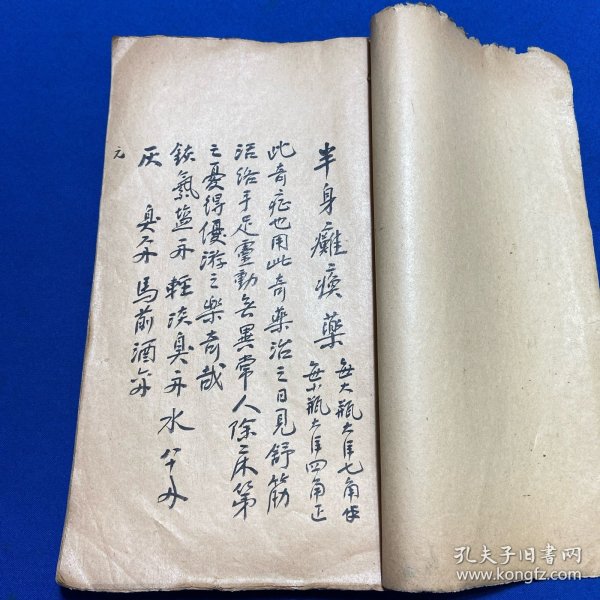 半身癱瘓藥
每大瓶大洋七角正
每小瓶大洋四角正
此奇症也用此奇藥治之日見舒筋
活络手足靈動無異常人除床第
之憂得優游之樂奇哉
鉄氣盐 輕淡臭 水
灰 臭 馬前酒
元
孔夫子旧书网
www.kongfz.com